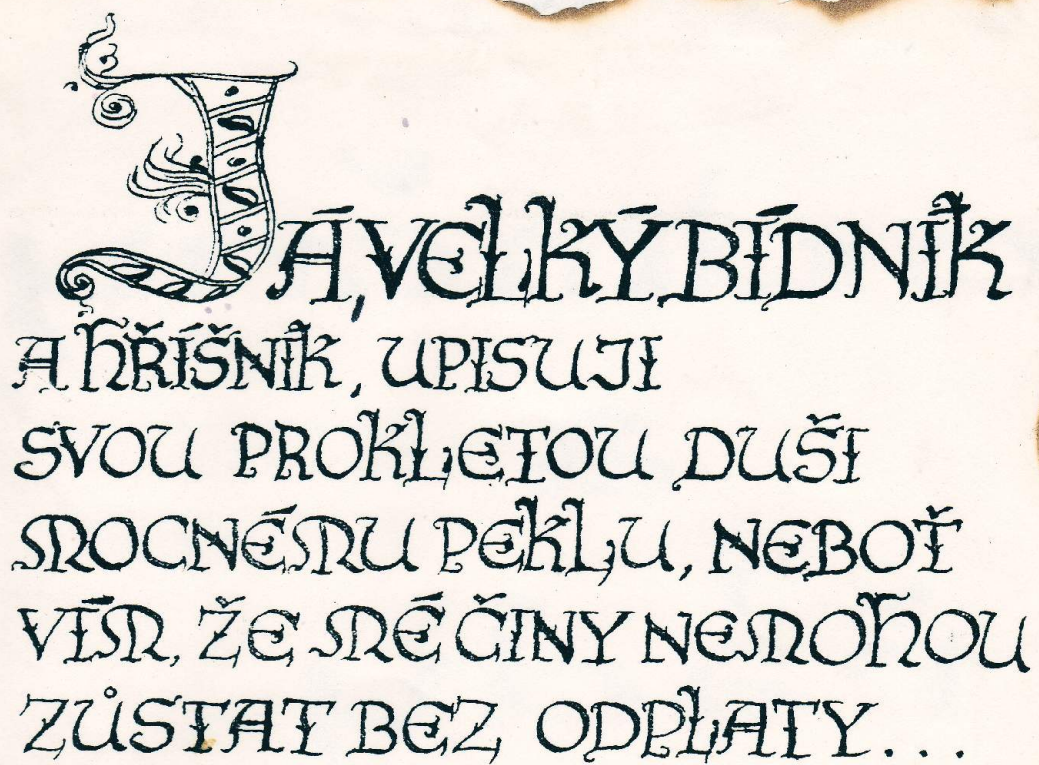 JÁ, VELKÝ BÍDNÍK
A HŘÍŠNÍK, UPISUJI
SVOU PROKLETOU DUŠI
MOCNÉMU PEKLU, NEBOŤ
VÍM, ŽE MÉ ČINY NEMOHOU
ZŮSTAT BEZ ODPLATY...